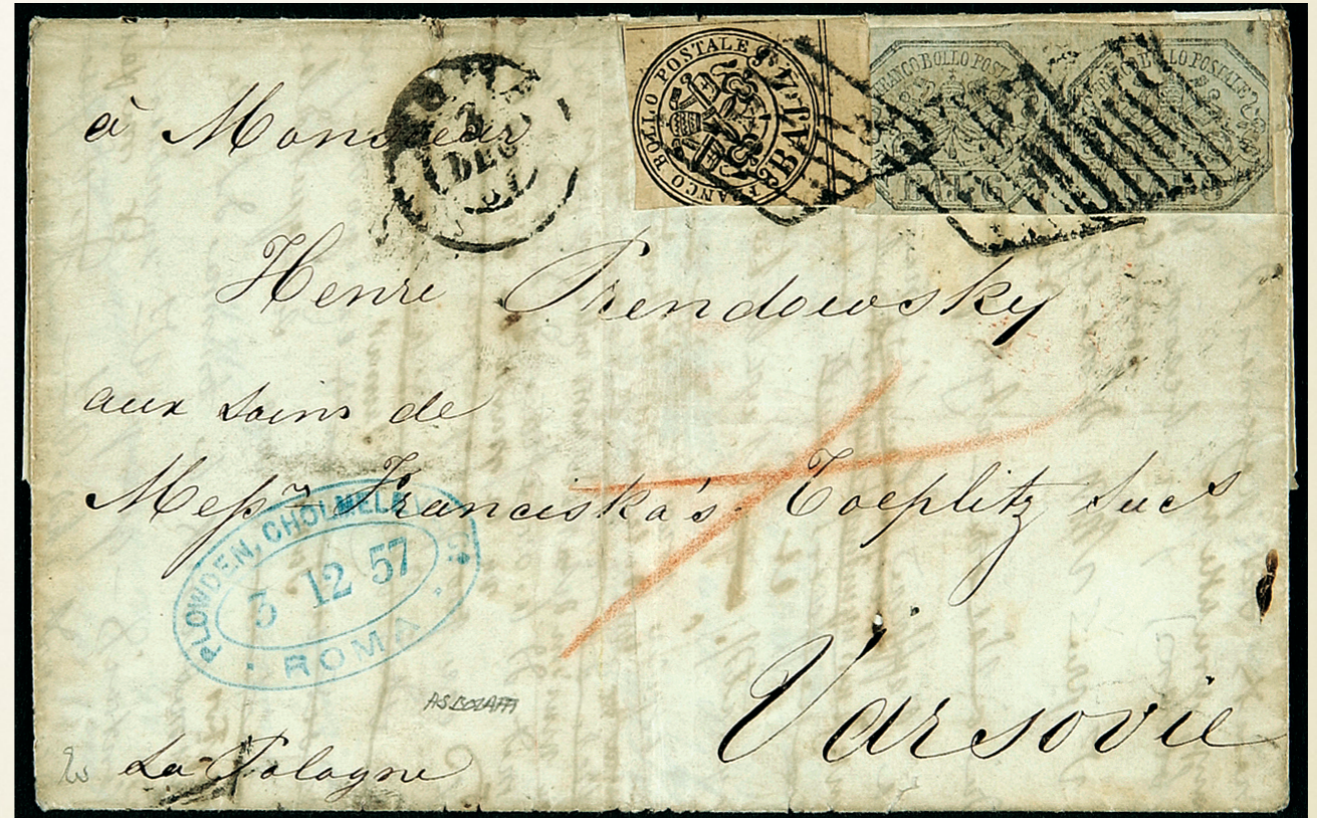 FRANCO BOLLO POSTALE
BAJ. 4
FRANCO BOLLO POSTALE
BAJ. 6
FRANCO BOLLO POSTALE
DEC
57
à Monsieur
Henri Prendowsky
aux soins de
Messrs Franciska's Toeplitz Sucs
PLOWDEN, CHOLMELEY
3 12 57
ROMA
Varsovie
La Pologne